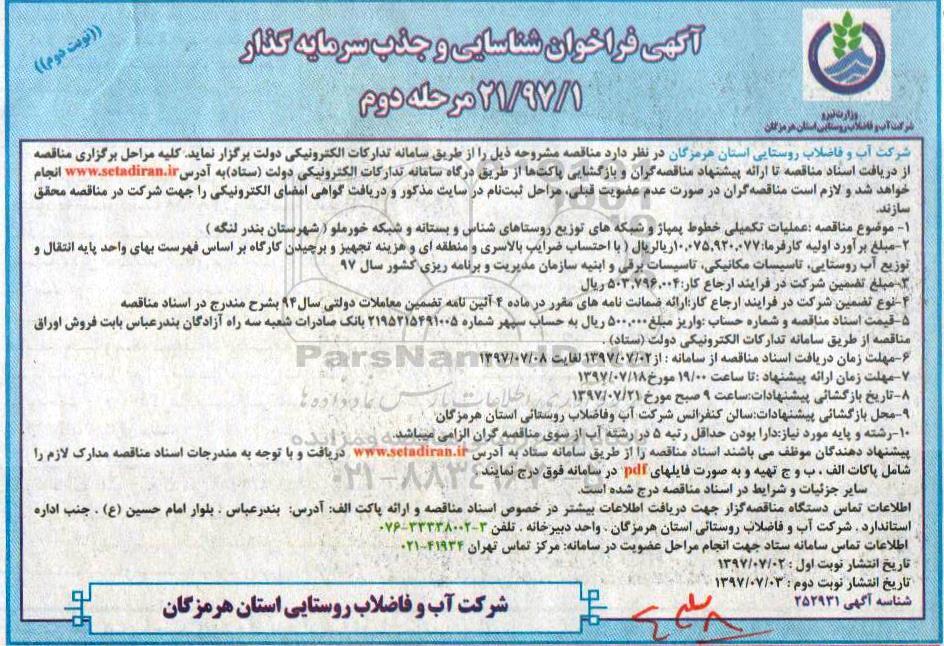 ((نوبت دوم))
آگهی فراخوان شناسایی و جذب سرمایه گذار
۲۱/۹۷/۱ مرحله دوم
وزارت نیرو
شرکت آب و فاضلاب روستایی استان هرمزگان
شرکت آب و فاضلاب روستایی استان هرمزگان در نظر دارد مناقصه مشروحه ذیل را از طریق سامانه تدارکات الکترونیکی دولت برگزار نماید. کلیه مراحل برگزاری مناقصه
از دریافت اسناد مناقصه تا ارائه پیشنهاد مناقصه‌گران و بازگشایی پاکت‌ها از طریق درگاه سامانه تدارکات الکترونیکی دولت (ستاد)به آدرس www.setadiran.ir انجام
خواهد شد و لازم است مناقصه‌گران در صورت عدم عضویت قبلی، مراحل ثبت‌نام در سایت مذکور و دریافت گواهی امضای الکترونیکی را جهت شرکت در مناقصه محقق
سازند.
۱- موضوع مناقصه :عملیات تکمیلی خطوط پمپاژ و شبکه های توزیع روستاهای شناس و بستانه و شبکه خورملو ( شهرستان بندر لنگه )
۲-مبلغ برآورد اولیه کارفرما:۱۰،۰۷۵،۹۲۰،۰۷۷ریالریال ( با احتساب ضرایب بالاسری و منطقه ای و هزینه تجهیز و برچیدن کارگاه بر اساس فهرست بهای واحد پایه انتقال و
توزیع آب روستایی، تاسیسات مکانیکی، تاسیسات برقی و ابنیه سازمان مدیریت و برنامه ریزی کشور سال ۹۷
۳-مبلغ تضمین شرکت در فرایند ارجاع کار:۵۰۳،۷۹۶،۰۰۴ ریال
۴-نوع تضمین شرکت در فرایند ارجاع کار:ارائه ضمانت نامه های مقرر در ماده ۴ آئین نامه تضمین معاملات دولتی سال۹۴ بشرح مندرج در اسناد مناقصه
۵-قیمت اسناد مناقصه و شماره حساب :واریز مبلغ۵۰۰،۰۰۰ ریال به حساب سپهر شماره ۲۱۹۵۲۱۵۴۹۱۰۰۵ بانک صادرات شعبه سه راه آزادگان بندرعباس بابت فروش اوراق
مناقصه از طریق سامانه تدارکات الکترونیکی دولت (ستاد) .
۶-مهلت زمان دریافت اسناد مناقصه از سامانه : از۱۳۹۷/۰۷/۰۲ لغایت ۱۳۹۷/۰۷/۰۸
۷-مهلت زمان ارائه پیشنهاد :تا ساعت ۱۹/۰۰ مورخ۱۳۹۷/۰۷/۱۸
۸-تاریخ بازگشائی پیشنهادات:ساعت ۹ صبح مورخ ۱۳۹۷/۰۷/۲۱
۹-محل بازگشائی پیشنهادات:سالن کنفرانس شرکت آب وفاضلاب روستائی استان هرمزگان
۱۰-رشته و پایه مورد نیاز:دارا بودن حداقل رتبه ۵ در رشته آب از سوی مناقصه گران الزامی میباشد
پیشنهاد دهندگان موظف می باشند اسناد مناقصه را از طریق سامانه ستاد به آدرس www.setadiran.ir دریافت و با توجه به مندرجات اسناد مناقصه مدارک لازم را
شامل پاکات الف ، ب و ج تهیه و به صورت فایلهای pdf در سامانه فوق درج نمایند.
سایر جزئیات و شرایط در اسناد مناقصه درج شده است.
اطلاعات تماس دستگاه مناقصه‌گزار جهت دریافت اطلاعات بیشتر در خصوص اسناد مناقصه و ارائه پاکت الف: آدرس: بندرعباس . بلوار امام حسین (ع) . جنب اداره
استاندارد . شرکت آب و فاضلاب روستائی استان هرمزگان . واحد دبیرخانه . تلفن ۳-۰۷۶-۳۳۳۳۸۰۰۲
اطلاعات تماس سامانه ستاد جهت انجام مراحل عضویت در سامانه: مرکز تماس تهران ۴۱۹۳۴-۰۲۱
تاریخ انتشار نوبت اول : ۱۳۹۷/۰۷/۰۲
تاریخ انتشار نوبت دوم : ۱۳۹۷/۰۷/۰۳
شناسه آگهی ۲۵۲۹۳۱
شرکت آب و فاضلاب روستایی استان هرمزگان
ParsNamadD